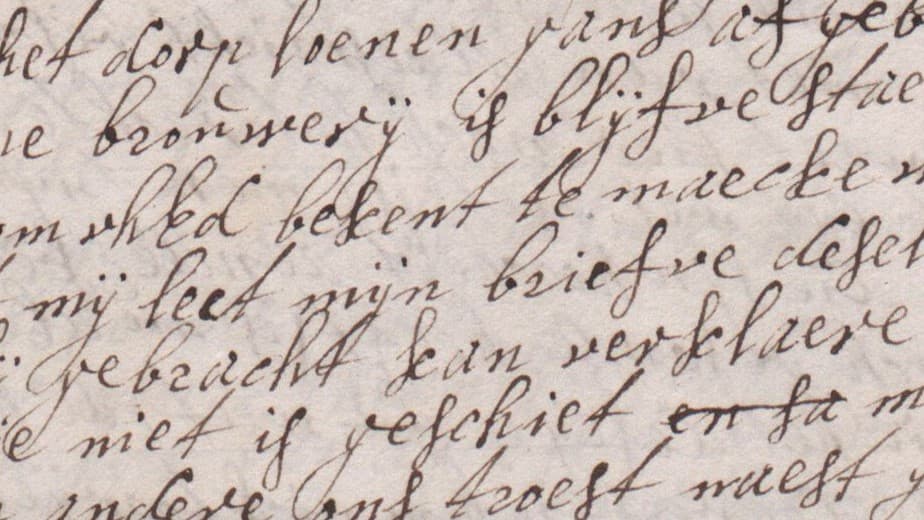 het dorp loenen gans af geb
brouwerÿ is blÿfve stae
om uhEd bekent te maecke
mÿ leet mÿn briefve desen
gebracht kan versklaere
ie niet is geschiet en sa m
andere ons troest naest g